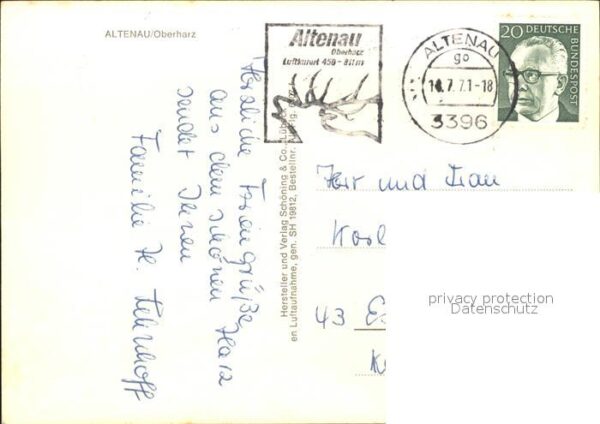 ALTENAU/Oberharz
Altenau
Oberharz
Luftkurort 450 - 811 m
ALTENAU
go
7.71-18
3396
20 DEUTSCHE
BUNDESPOST
Herzliche Feriengrüße
aus dem schönen Harz
sendet Ihnen
Familie H.
Hersteller und Verlag Schöning & Co., Lübeck
en Luftaufnahme, gen. SH 19812, Bestellnr.
Herr und Frau
Karl
43 Es
privacy protection
Datenschutz